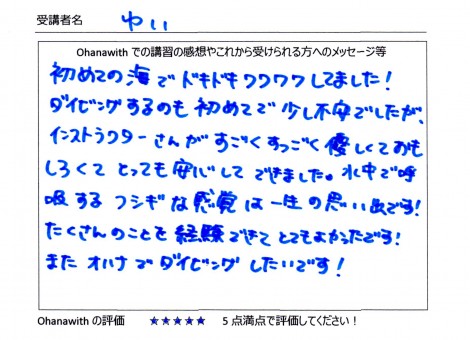 受講者名 ゆい
Ohanawith での講習の感想やこれから受けられる方へのメッセージ等
初めての海でドキドキワクワクしてました!
ダイビングするのも初めてで少し不安でしたが、
インストラクターさんがすごくすっごく優しくておも
しろくてとっても安心してできました。水中で呼
吸するフシギな感覚は一生の思い出です!
たくさんのことを経験できてとてもよかったです!
またオハナでダイビングしたいです!
Ohanawith の評価 ★★★★★ 5 点満点で評価してください!